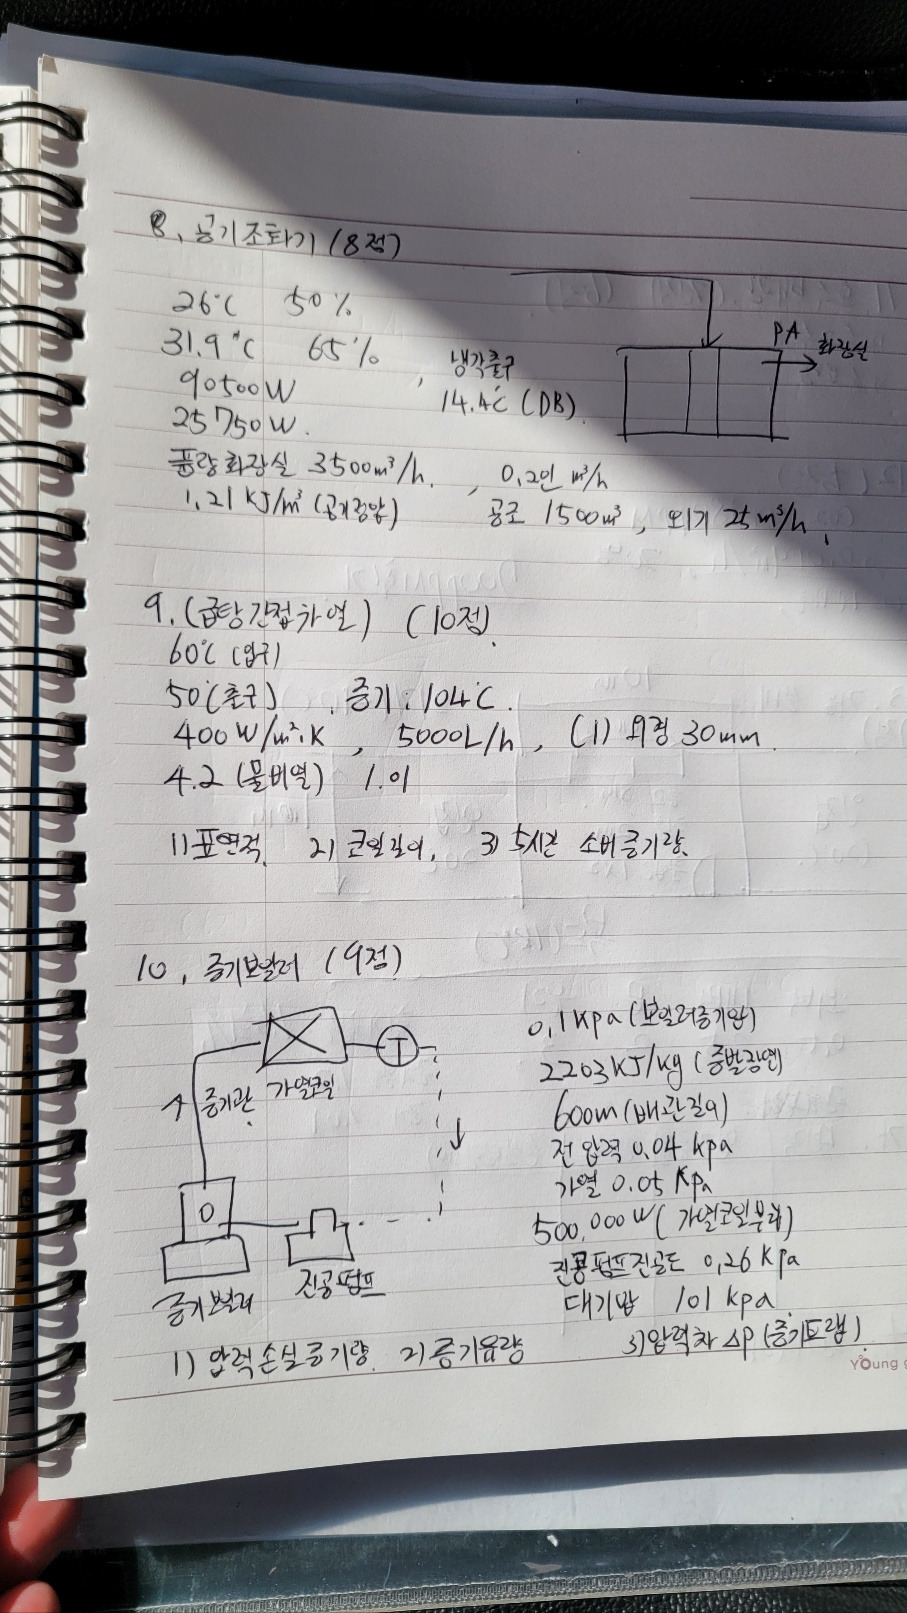 8. 공기조화기 (8점)
26℃ 50%
31.9℃ 65%
90500W , 냉각출구
25750W. 14.4℃ (DB)
PA 화장실
풍량 화장실 3500m³/h. , 0.2인 m³/h
1.21 KJ/m³ (공기정압) 공조 1500m³, 외기 25m³/h,
9. (급탕 간접가열) (10점).
60℃ (입구)
50 (출구) , 증기 : 104℃.
400W/m²·K , 5000L/h, (1) 외경 30mm.
4.2 (물비열) 1.01
1) 표면적 2) 코일길이, 3) 5시간 소비증기량.
10. 증기보일러 (9점)
T
증기관 가열코일
증기보일러
진공펌프
0.1 Kpa (보일러증기압)
2203KJ/kg (증발잠열)
600m (배관길이)
전 압력 0.04 kpa
가열 0.05 Kpa
500,000W (가열코일부하)
진공펌프진공도 0.26 Kpa
대기압 101 kpa
1) 압력손실증기량. 2) 증기유량 3) 압력차 ΔP (증기트랩)
Young